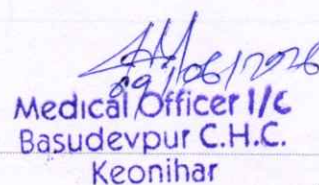 09/06/2026
Medical Officer I/C
Basudevpur C.H.C.
Keonjhar